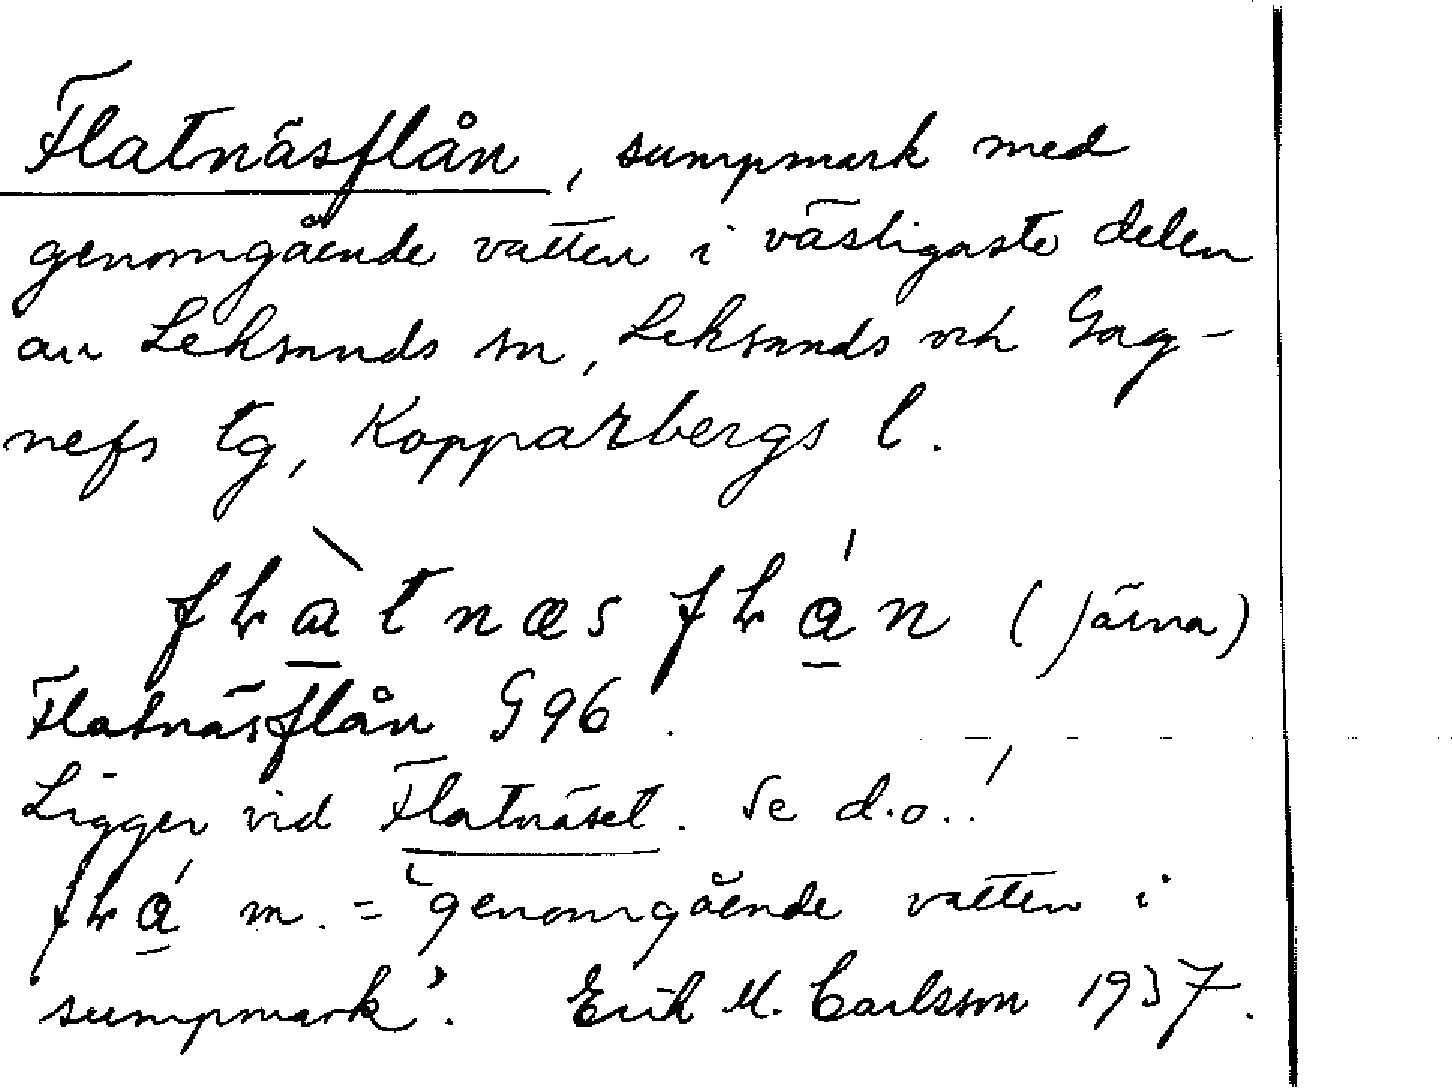 Flatnäsflån, sumpmark med
genomgående vatten i västligaste delen
av Leksands sn, Leksands och Gag-
nefs tg, Kopparbergs l.
(Järna)
Flatnäsflån G96.
Ligger vid Flatnäset. Se d.o.!
m. = 'genomgående vatten i
sumpmark'. Erik M. Carlsson 1937.